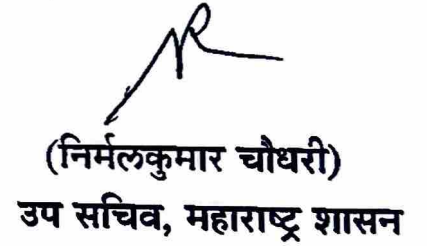 (निर्मलकुमार चौधरी)
उप सचिव, महाराष्ट्र शासन